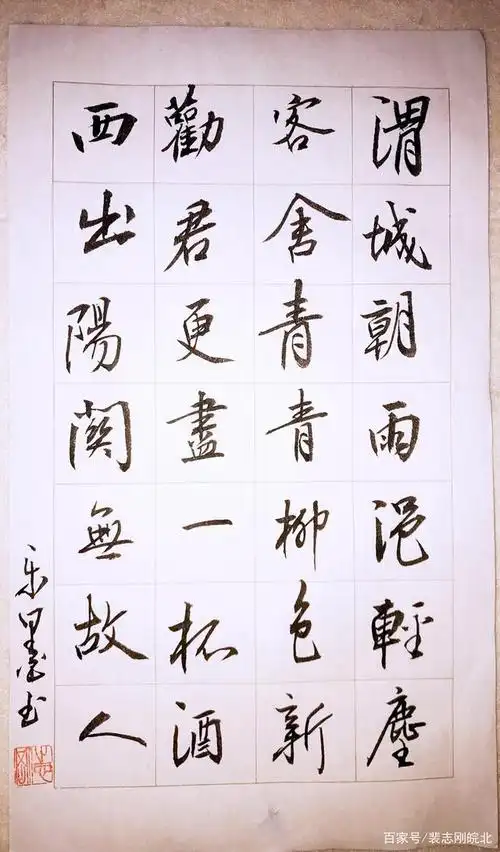 渭城朝雨浥輕塵
客舍青青柳色新
勸君更盡一杯酒
西出陽關無故人
乐墨书
百家号/裴志刚皖北